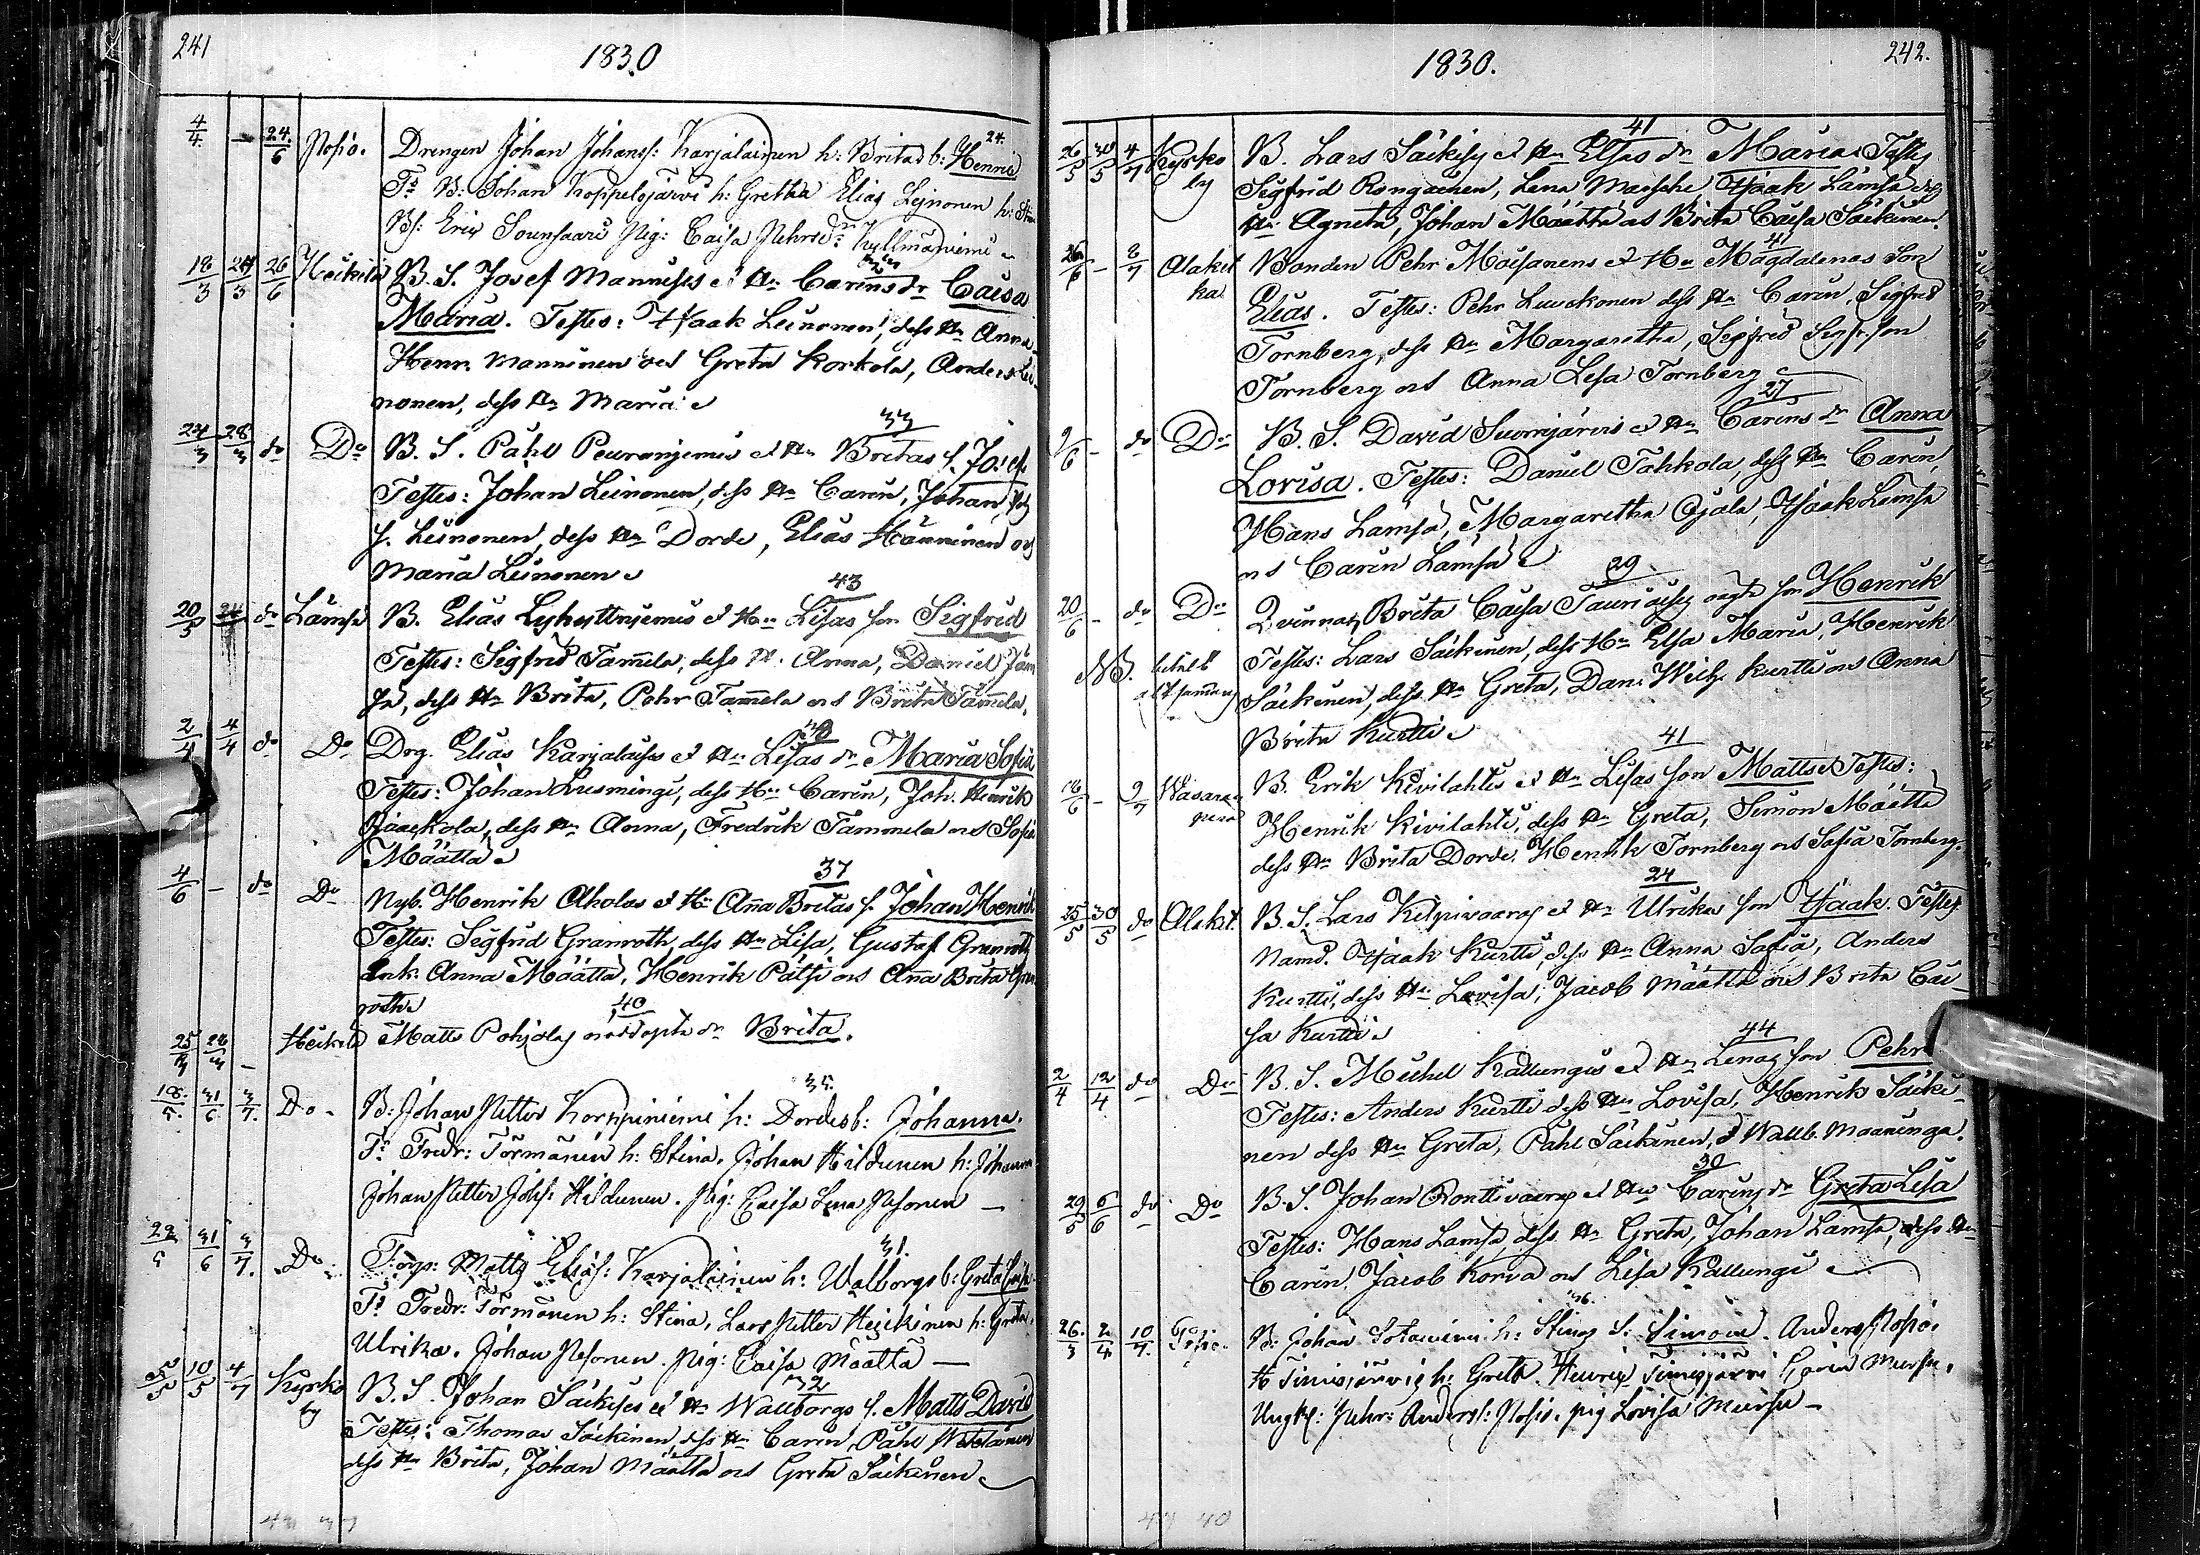 241
1830
4/4 — 24/6 Posio. Drengen Johan Johanss: Karjalainen h: Britas b: Henric 24.
Ts B: Johan Koppelojärvi h: Gretha Elias Leinonen h:
Bs: Eric Sounsaari Pig: Caisa Pehrsdr Kyllmäniemi
18/3 24/3 26/6 Heikilä B. S. Josef Mannises et Hu Carins dr Caisa
Maria. Testes: Isaak Leinonen, dess Hu Anna
Henr. Manninen och Greta Korkola, Anders Lei-
nonen, dess Hu Maria
33
24/3 28/3 do Do B. S. Påhl Peuraniemis et Hu Britas s. Josef
Testes: Johan Leinonen, dess Hu Carin, Johan
s. Leinonen, dess Hu Dorde, Elias Hänninen och
Maria Leinonen
43
20/3 do Lämsä B. Elias Lyhyttniemis et Hu Lisas son Sigfrid
Testes: Segfrid Tam̄ela, dess H. Anna, Daniel Jäm
sä, dess Hu Brita, Pehr Tam̄ela och Brita Tam̄ela.
2/4 4/4 do Do Drg. Elias Karjalaises et Hu Lisas dr Maria Sofia
Testes: Johan Kusmingi, dess Hu Carin, Joh. Henrik
Jaackola, dess Hu Anna, Fredrik Tammela och Sofia
Määttä
37
4/6 — do Do Nyb. Henrik Aholas et Hu An̄a Britas s. Johan Henrik
Testes: Segfrid Granroth, dess Hu Lisa, Gustaf Granroth
Enk. Anna Määttä, Henrik Pätsi och An̄a Brita Gran
roth
40
25/3 28/3 — Heikilä Matts Pohjolas nöddöpta dr Brita.
35.
18/5 31/6 3/7. Do. B: Johan Petter Korppiniemi h: Dordes b: Johanna.
Ts Fredr: Törmänen h: Stina. Johan Hildunen h: Johanna
Johan Petter Johss: Hildunen. Pig: Caisa Lena Pesonen —
31.
22/5 31/6 3/7. Do. Torp: Matts Eliass: Karjalainen h: Walborgs b: Greta
Ts Fredr: Törmänen h: Stina, Lars Petter Heickinen h: Greta
Ulrika. Johan Pesonen. Pig: Caisa Määttä —
32
5/5 10/5 4/7 Kyrko B. S. Johan Säkises et Hu Walborgs s. Matts David
by Testes: Thomas Säkinen, dess Hu Carin, Påhl
dess Hu Brita, Johan Määttä och Greta Säkinen
242.
1830.
41
26/5 30/5 4/7 Kyrko B. Lars Säkises et Hu Elsas dr Maria Testes
by Segfrid Rongainen, Lena Isaak Lämsä dess
Hu Agneta, Johan Määttä och Brita Caisa Säkinen.
41
26/6 — 8/7 Alakit Bonden Pehr Moisanens et Hu Magdalenas son
ka Elias. Testes: Pehr Luuckonen dess Hu Carin, Segfrid
Tornberg, dess Hu Margaretha, Segfrid Segfr. son
Tornberg och Anna Lisa Tornberg
27
9/6 — do Do B. S. David Suomijärvis et Hu Carins dr Anna
Lovisa. Testes: Daniel Tahkola, dess Hu Carin,
Hans Lämsä, Margaretha Ojala, Isaak Lämsä
och Carin Lämsä
29
20/6 — do Do Qvinnans Brita Caisa oägta son Henrik
NB. Testes: Lars Säkinen, dess Hu Elsa Maria, Henrik
Säkinen, dess Hu Greta, Dan. Kurtti och Anna
Brita Kurtti
41
18/6 — 9/7 Wasara B. Erik Kivilahtis et Hu Lisas son Matts Testes:
pera Henrik Kivilahti, dess Hu Greta, Simon Määttä
dess Hu Brita Dorde. Henrik Tornberg och Safia Tornberg.
24
25/5 30/5 do Alakit. B. S. Lars Kilpivaaras et Hu Ulrikas son Isaak. Testes
Nämd. Isaak Kurtti, dess Hu Anna Safia, Anders
Kurtti, dess Hu Lovisa, Jacob Määttä och Brita Cai-
sa Kurtti
44
2/4 12/4 do Do B. S. Michel Kallungis et Hu Lenas son Pehr
Testes: Anders Kurtti dess Hu Lovisa, Henrik Säki-
nen dess Hu Greta, Påhl Säkinen, et Wallb. Maaninga.
30
29/5 6/6 do Do B. S. Johan Ronttivaaras et Hu Carins dr Greta Lisa
Testes: Hans Lamsa, dess Hu Greta, Johan Lämsä, dess Hu
Carin, Jacob Korva och Lisa Kallungi
36.
26/3 2/4 10/7. Posio. B: Johan Sotaniemi h: Stinas S: Simon. Anders Posio.
H Timisjärvi h: Greta. Henric Timisjärvi Carin Mursu.
Ungk: Pehr: Anderss: Posio. pig Lovisa Mursu —